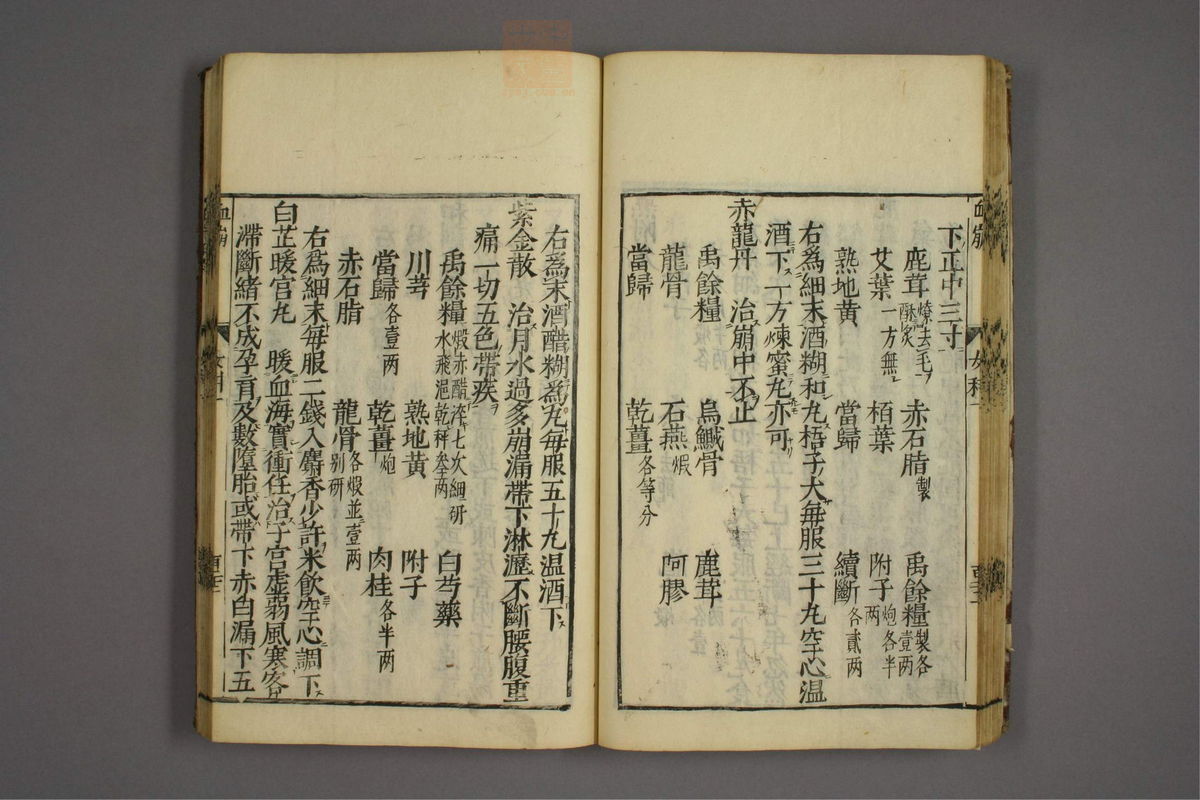 下正中三寸
鹿茸燎去毛酥炙　赤石脂製　禹餘糧製各壹两
艾葉一方無　栢葉　附子炮各半两
熟地黄　當歸　續斷各貳两
右爲細末酒糊和丸梧子大毎服三十丸空心温
酒下一方煉蜜丸亦可
赤龍丹　治崩中不止
禹餘糧　烏鰔骨　鹿茸
龍骨　石燕煅　阿膠
當歸　乾薑各等分
右爲末酒醋糊爲丸毎服五十丸温酒下
紫金散　治月水過多崩漏帶下淋瀝不斷腰腹重
痛一切五色帶疾
禹餘糧煅赤醋淬七次細研水飛浥乾秤叁两　白芍藥
川芎　熟地黄　附子
當歸各壹两　乾薑炮　肉桂各半两
赤石脂　龍骨别研各煅並壹两
右爲細末毎服二錢入麝香少許米飲空心調下
白芷暖宫丸　暖血海實衝任治子宫虚弱風寒客
滯斷緒不成孕育及數墮胎或帶下赤白漏下五
血崩
女科一